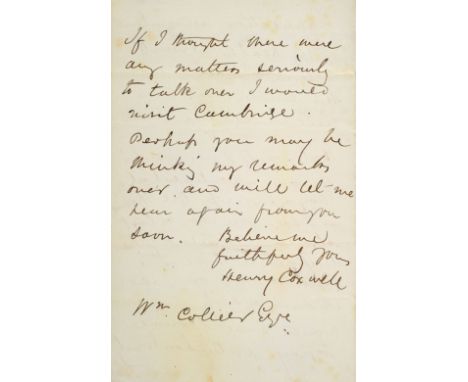 If I thought there were
any matters seriously
to talk over I would
visit Cambridge.
Perhaps you may be
thinking my remarks
over and will let me
hear again from you
soon. Believe me
faithfully yours
Henry Coxwell
Wm. Collier Esqr.